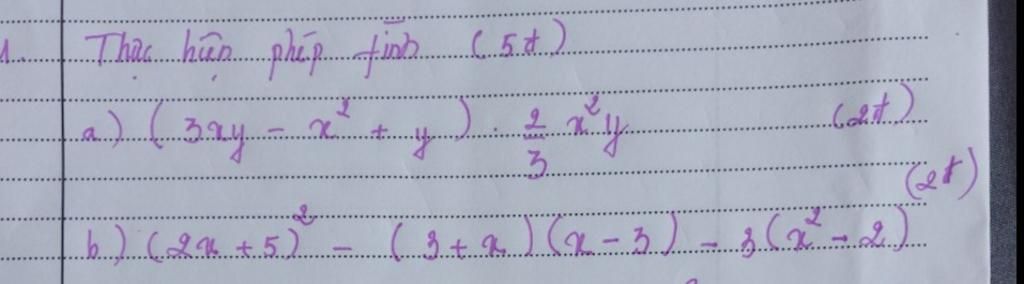 1. Thực hiện phép tính (5đ)
a) (3xy - x² + y) . 2/3 x²y (2đ)
(2đ)
b) (2x + 5)² - (3 + x)(x - 3) - 3(x² - 2)